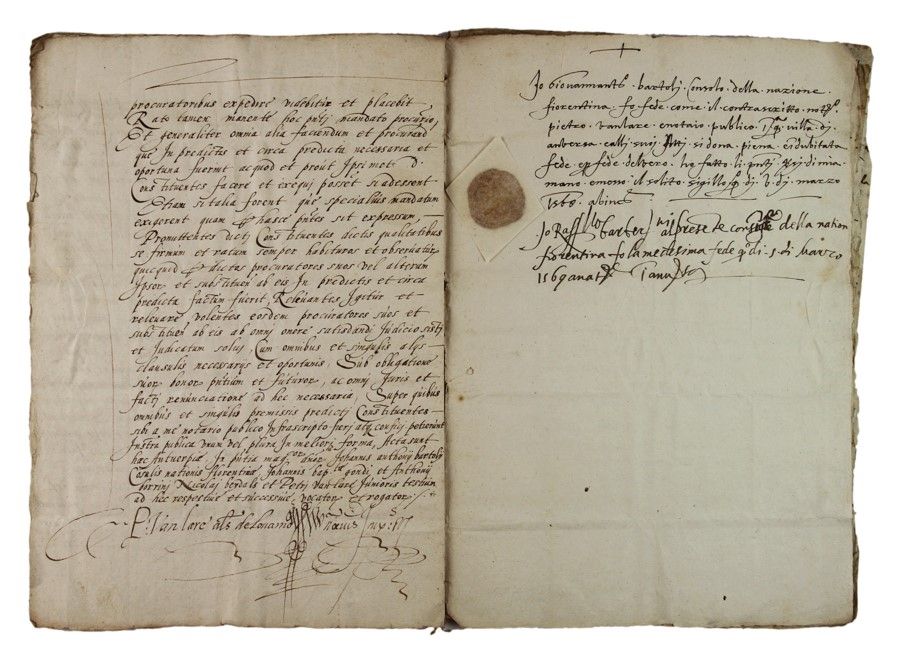 procuratoribus expedire videbitur et placebit
Rato tamen manente hoc pnti mandato procurio,
Et generaliter omnia alia faciendum et procurand
que In predictis et circa predicta necessaria et
oportuna fuerint ac quod et prout Ipsi met D.
Constituentes facere et exequi possent si adessent
Etiam si talia forent que specialius mandatum
exigerent quam phasce pntes sit expressum,
Promittentes dicti Constituentes dictis qualitatibus
se firmum et ratum semper habituros et observaturos
quicquid p dictos procuratores suos vel alterum
Ipsor et substituen ab eis In predictis et circa
predicta factum fuerit, Relevantes Igitur et
relevare volentes eosdem procuratores suos et
substituen ab eis ab omni onere satisdandi Judicio sisti
et Judicatum solvj, Cum omnibus et singulis alys
clausulis necessarys et oportunis, Sub obligatione
suor bonor pntium et futuror, ac omni Juris et
facti renunciatione ad hec necessaria, Super quibus
omnibus et singulis premissis predicti Constituentes
sibi a me notario publico Infrascripto fieri atq confici petierunt
Instra publica unum vel plura In meliori forma, Acta sunt
hac Antuerpiæ, In pntia mag.cor dnor Johannis anthonij bartolj
Cosulis nationis florentinæ, Johannis bap.ta gondi, et Anthonij
Nicolaj et Petrj Vanlare Junioris testium
ad hec respective et successive, vocator et rogator
P. Van lare als de Lovanio
+
Io Giovannant.o bartolj Consolo della nazione
fiorentina fo fede come il contrascritto not.o
pietro vanlare e notaio publico In q.a villa di
anversa e alli suoi Atti si dona piena e indubitata
fede e p fede del vero ho fatto li pnti versi di mia
mano e messo il solito sigillo q.o dj 6 dj marzo
1568
Io Raff.llo al presente console della nation
fiorentina fo la medesima fede q.o di 5 di Marzo
1569